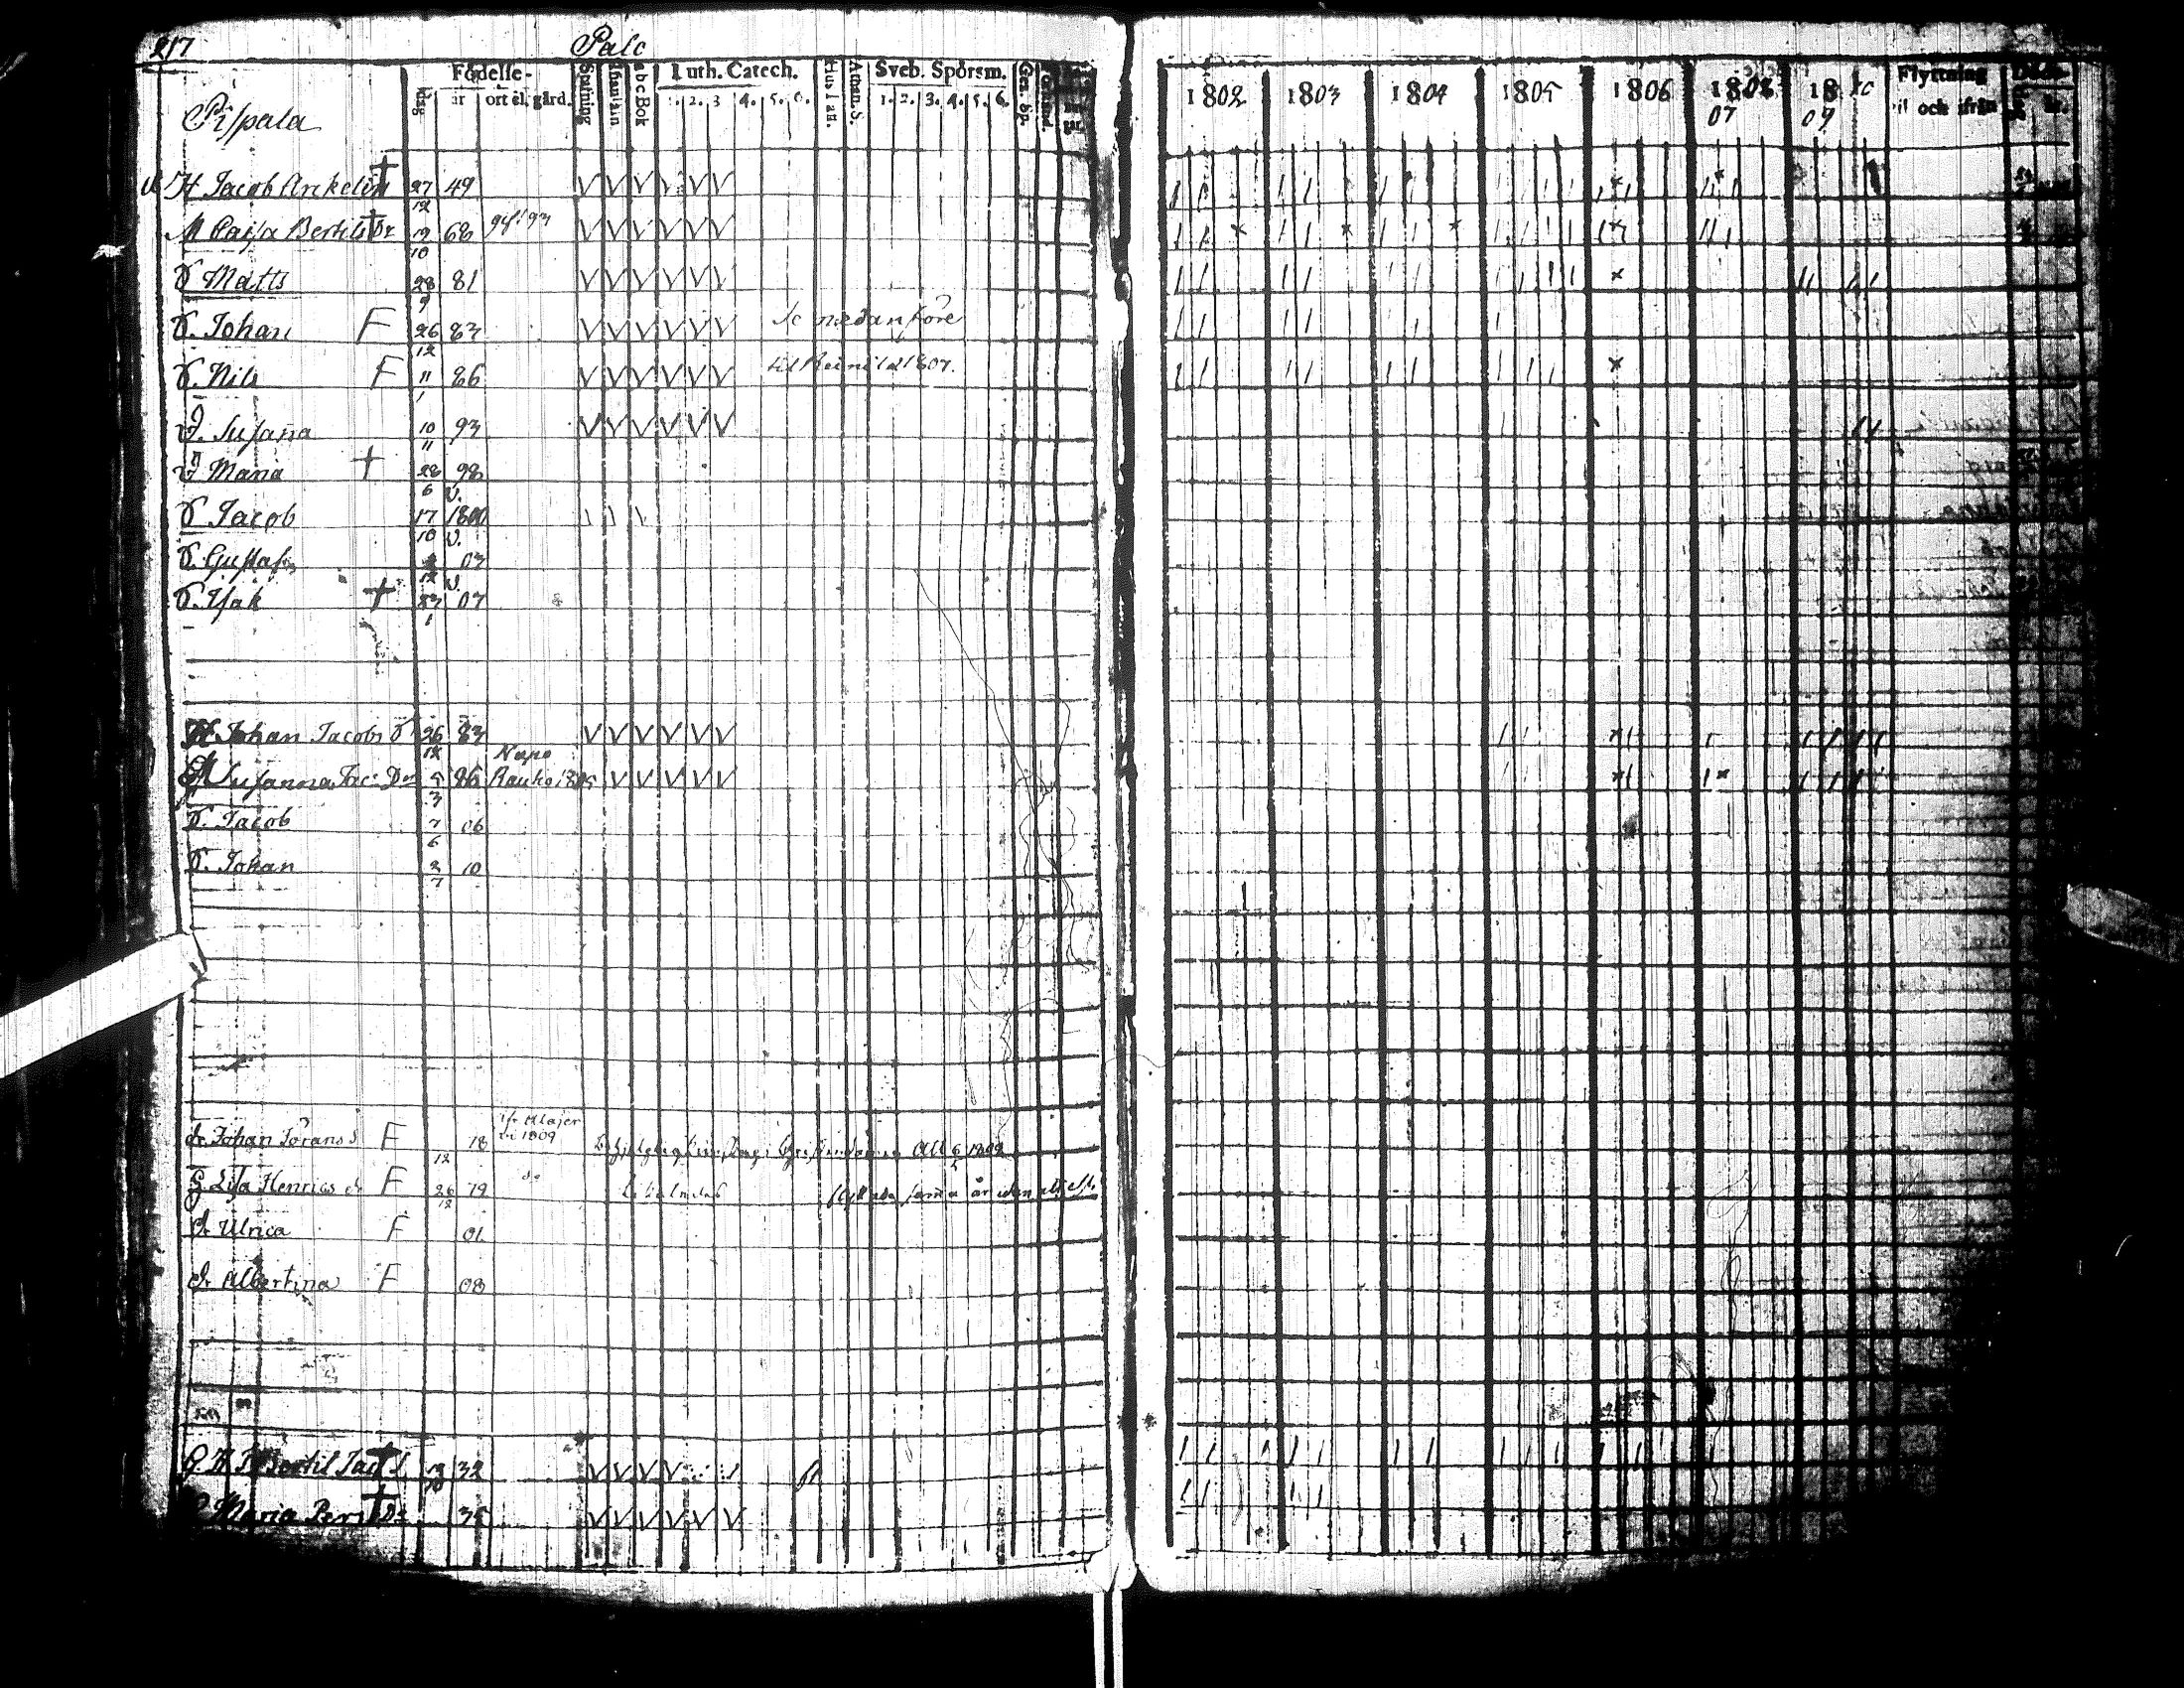 217 Palo
Födelse- Luth. Catech. Sveb. Spörsm.
dag år ort el. gård. Stafning abc Bok 1. 2. 3 4. 5. 6. Athan. S. 1. 2. 3. 4. 5. 6. Gez. Sp.
1802 1803 1804 1805 1806 1808 07 18 09 10 Flyttning til och ifrån år.
Pispala
H Jacob Ankelin † 27/12 49
M Caisa Bertils Dr † 19/10 68 gift 93
S Matts 28/9 81
S. Johan F 26/12 83 se nedanföre
S. Nils F 11/1 86 1807.
D. Susana 10/11 93
D Maria † 28/6 98 v.
S Jacob 17/10 1800 v.
S. Gustaf 12 03 v.
S. Isak † 23/1 07
H Johan Jacobs S 26/12 83
M Susanna Jac: Dr 5/3 86 Napo Rauko 1805
S. Jacob 7/6 06
S. Johan 2/7 10
dr Johan Jörans S. F 12 78 ifr Majer 1809 Att 1809
G Lisa Henrics dr F 26/12 79 do samma år utan attest.
dr Ulrica F 01
dr Albertina F 08
Bertil Jac S † 19/10 32
Maria Pers Dr † 35